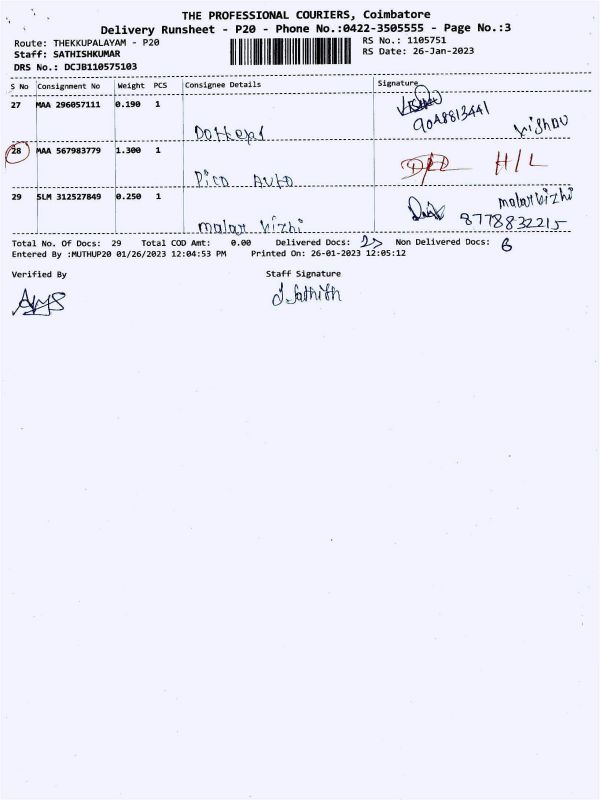 THE PROFESSIONAL COURIERS, Coimbatore
Delivery Runsheet - P20 - Phone No.:0422-3505555 - Page No.:3
Route: THEKKUPALAYAM - P20
RS No.: 1105751
Staff: SATHISHKUMAR
RS Date: 26-Jan-2023
DRS No.: DCJB110575103
S No Consignment No Weight PCS Consignee Details Signature
27 MAA 296057111 0.190 1
Vishnu
28 MAA 567983779 1.300 1
H/L
Pico Auto
29 SLM 312527849 0.250 1
malarvizhi
8778832215
malar vizhi
Total No. Of Docs: 29 Total COD Amt: 0.00 Delivered Docs: Non Delivered Docs: 6
Entered By :MUTHUP20 01/26/2023 12:04:53 PM Printed On: 26-01-2023 12:05:12
Verified By Staff Signature
J. Sathish